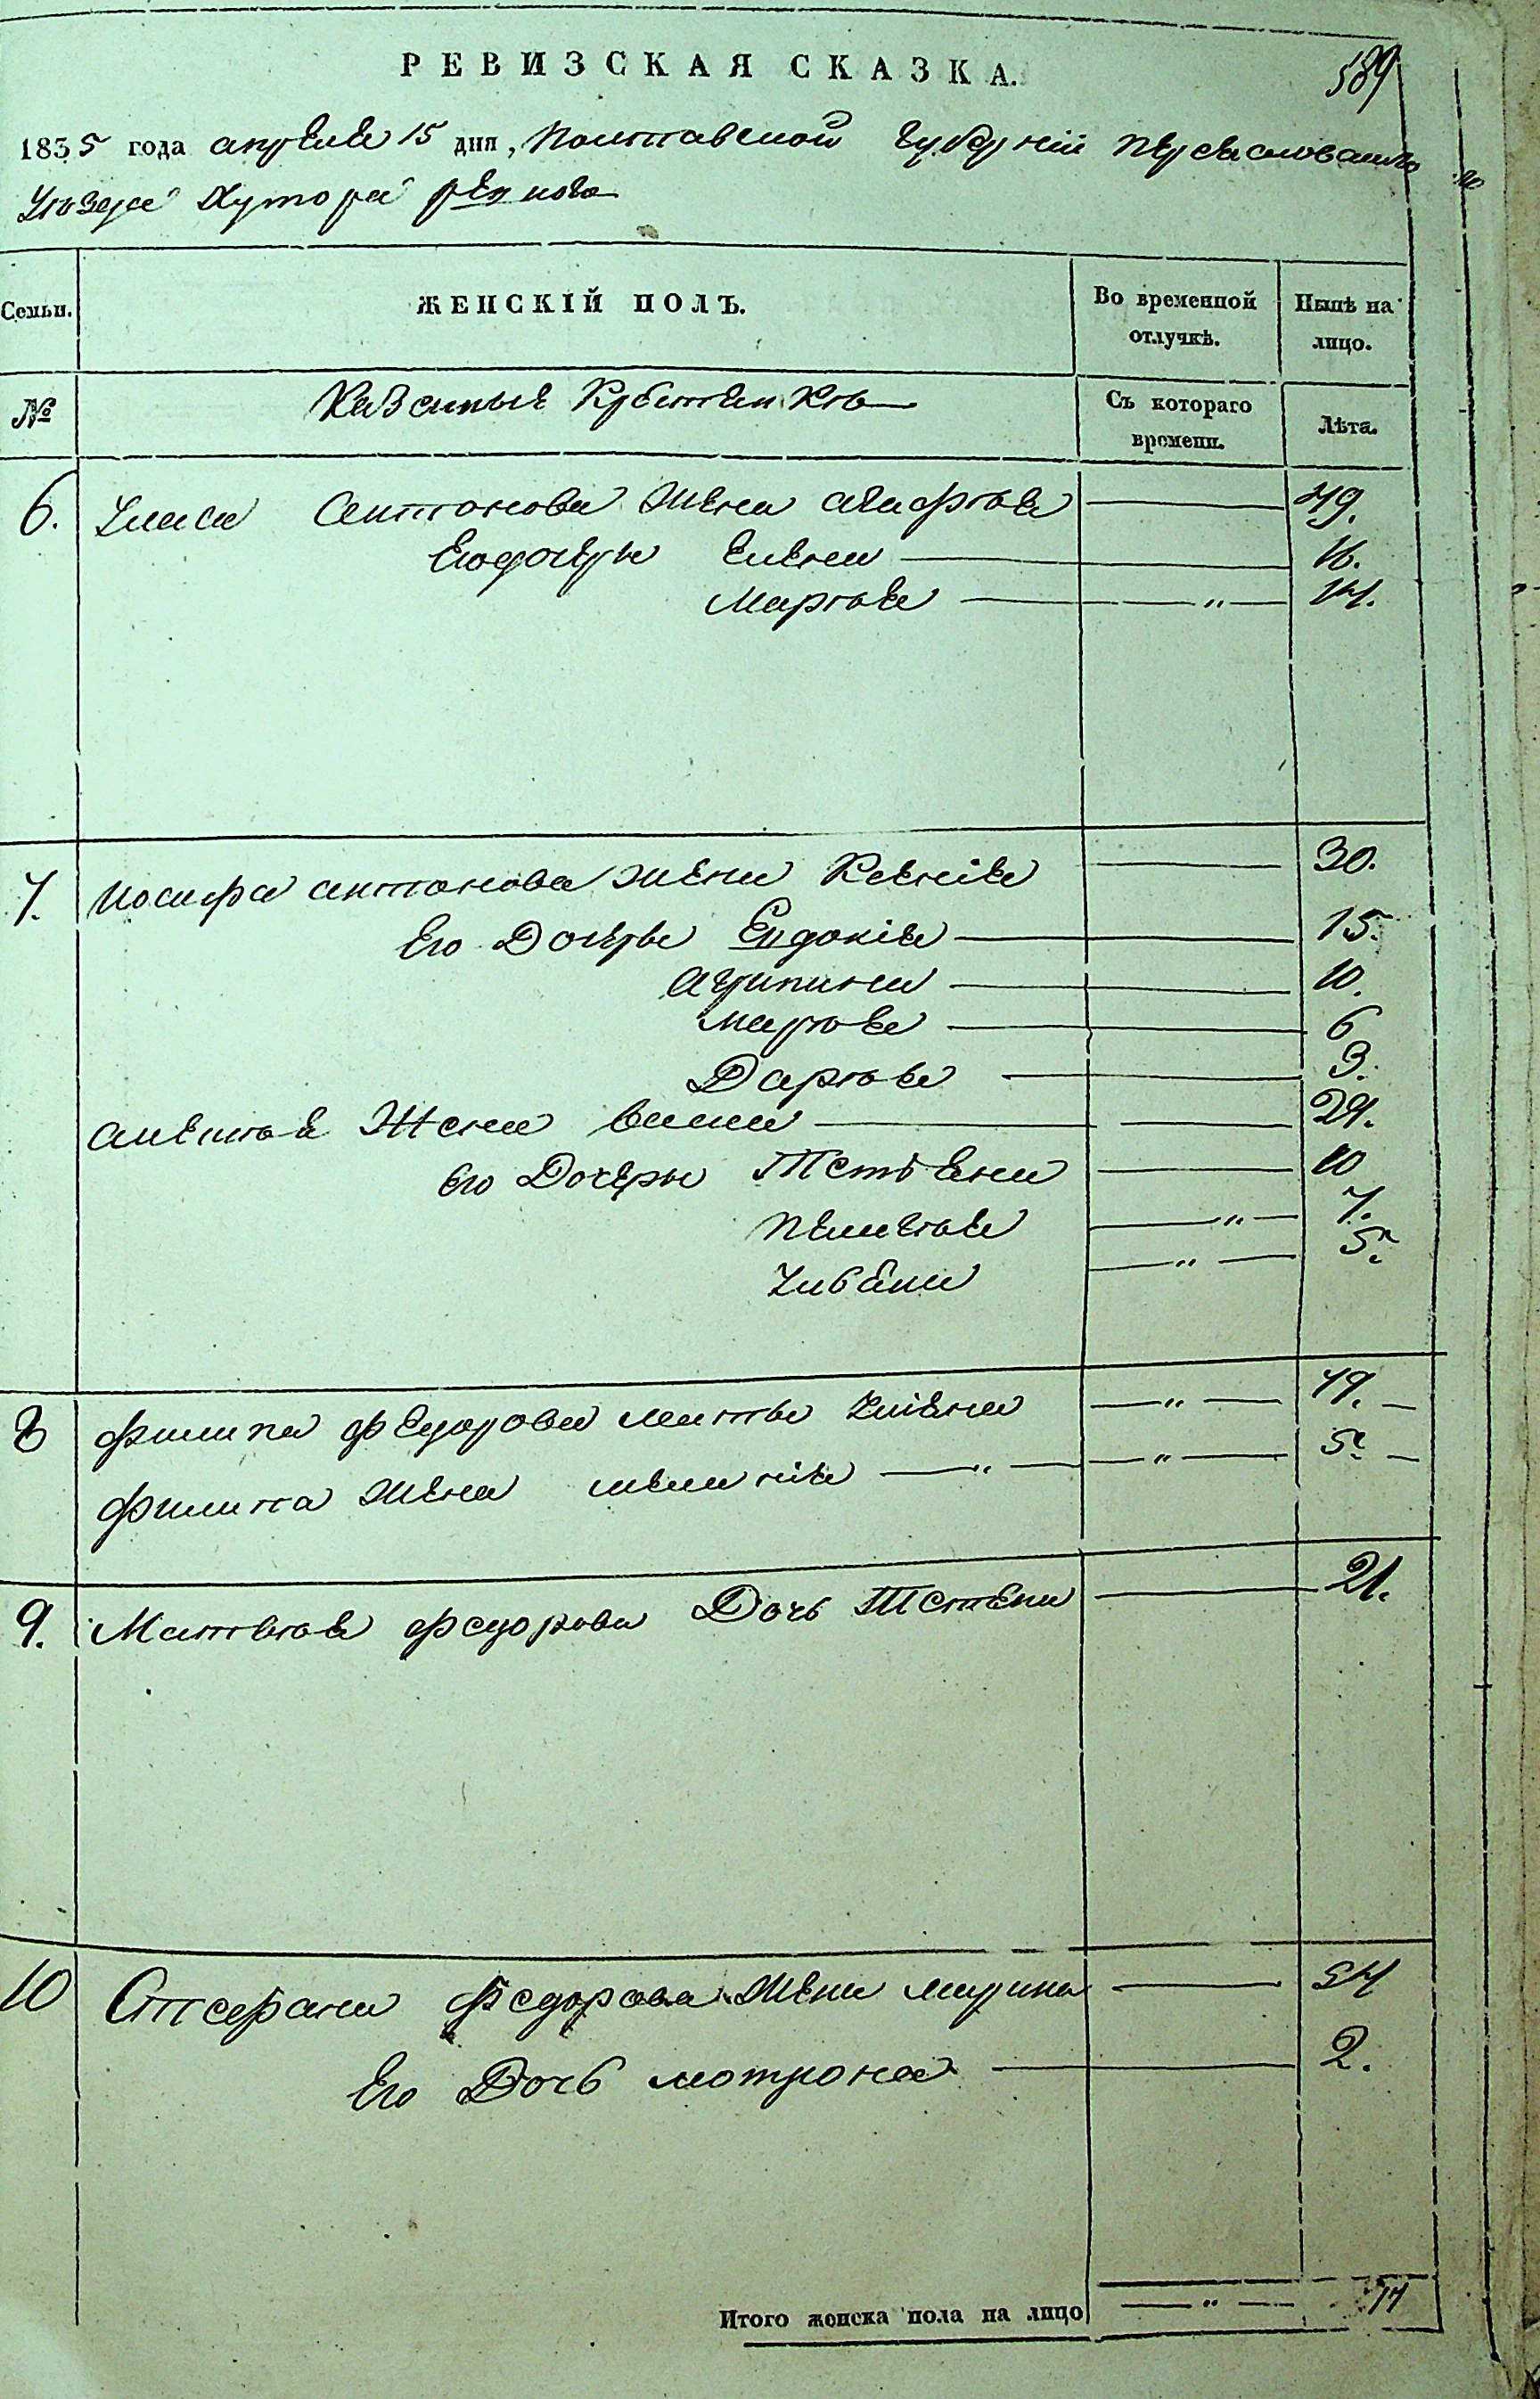 РЕВИЗСКАЯ СКАЗКА.
589
1835 года апреля 15 дня, Полтавской губерніи Переясловскаго
Уезда Хутора
Семьи. ЖЕНСКІЙ ПОЛЪ. Во временной отлучкѣ. Нынѣ на лицо.
№ Съ котораго времени. Лѣта.
6. Уласа Антонова Жена Агафія 49.
Его дочеры Елена 16.
Марія " 14.
7. Иосифа антонова жена Ксенія 30.
Его Дочеры Евдокія 15.
Агрипина 10.
Марія 6
Дарія 3.
Алексея Жена Анна 29.
Его Дочеры Тетяна 10
Пелагія " 7.
Уляна " 5.
8 Филипа Федорова мать Уляна " 49.
Филипа Жена "
9. Матвія Федорова Дочь Тетяна 21.
10 Стефана Федорова Жена Марина
Его Дочь мотрона 2.
Итого женска пола на лицо "